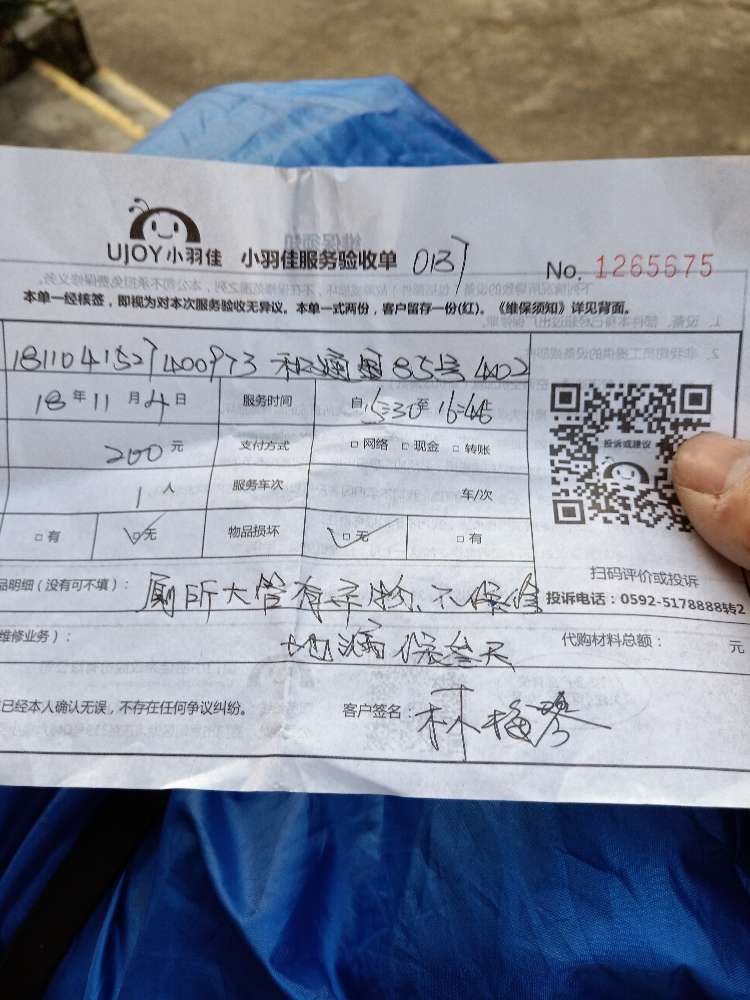 UJOY小羽佳 小羽佳服务验收单 0137 No. 1265675
本单一经核签，即视为对本次服务验收无异议。本单一式两份，客户留存一份(红)。《维保须知》详见背面。
1811041527400973 85号402
18年11月4日 服务时间 自15:30至16:45
200元 支付方式 □网络 □现金 □转账
投诉或建议
1人 服务车次 车/次
□有 □无 物品损坏 □无 □有
扫码评价或投诉
品明细（没有可不填）： 厕所大管有异物、不保修 投诉电话：0592-5178888转2
维修业务）： 地漏保叁天 代购材料总额： 元
已经本人确认无误，不存在任何争议纠纷。 客户签名： 林梅琴